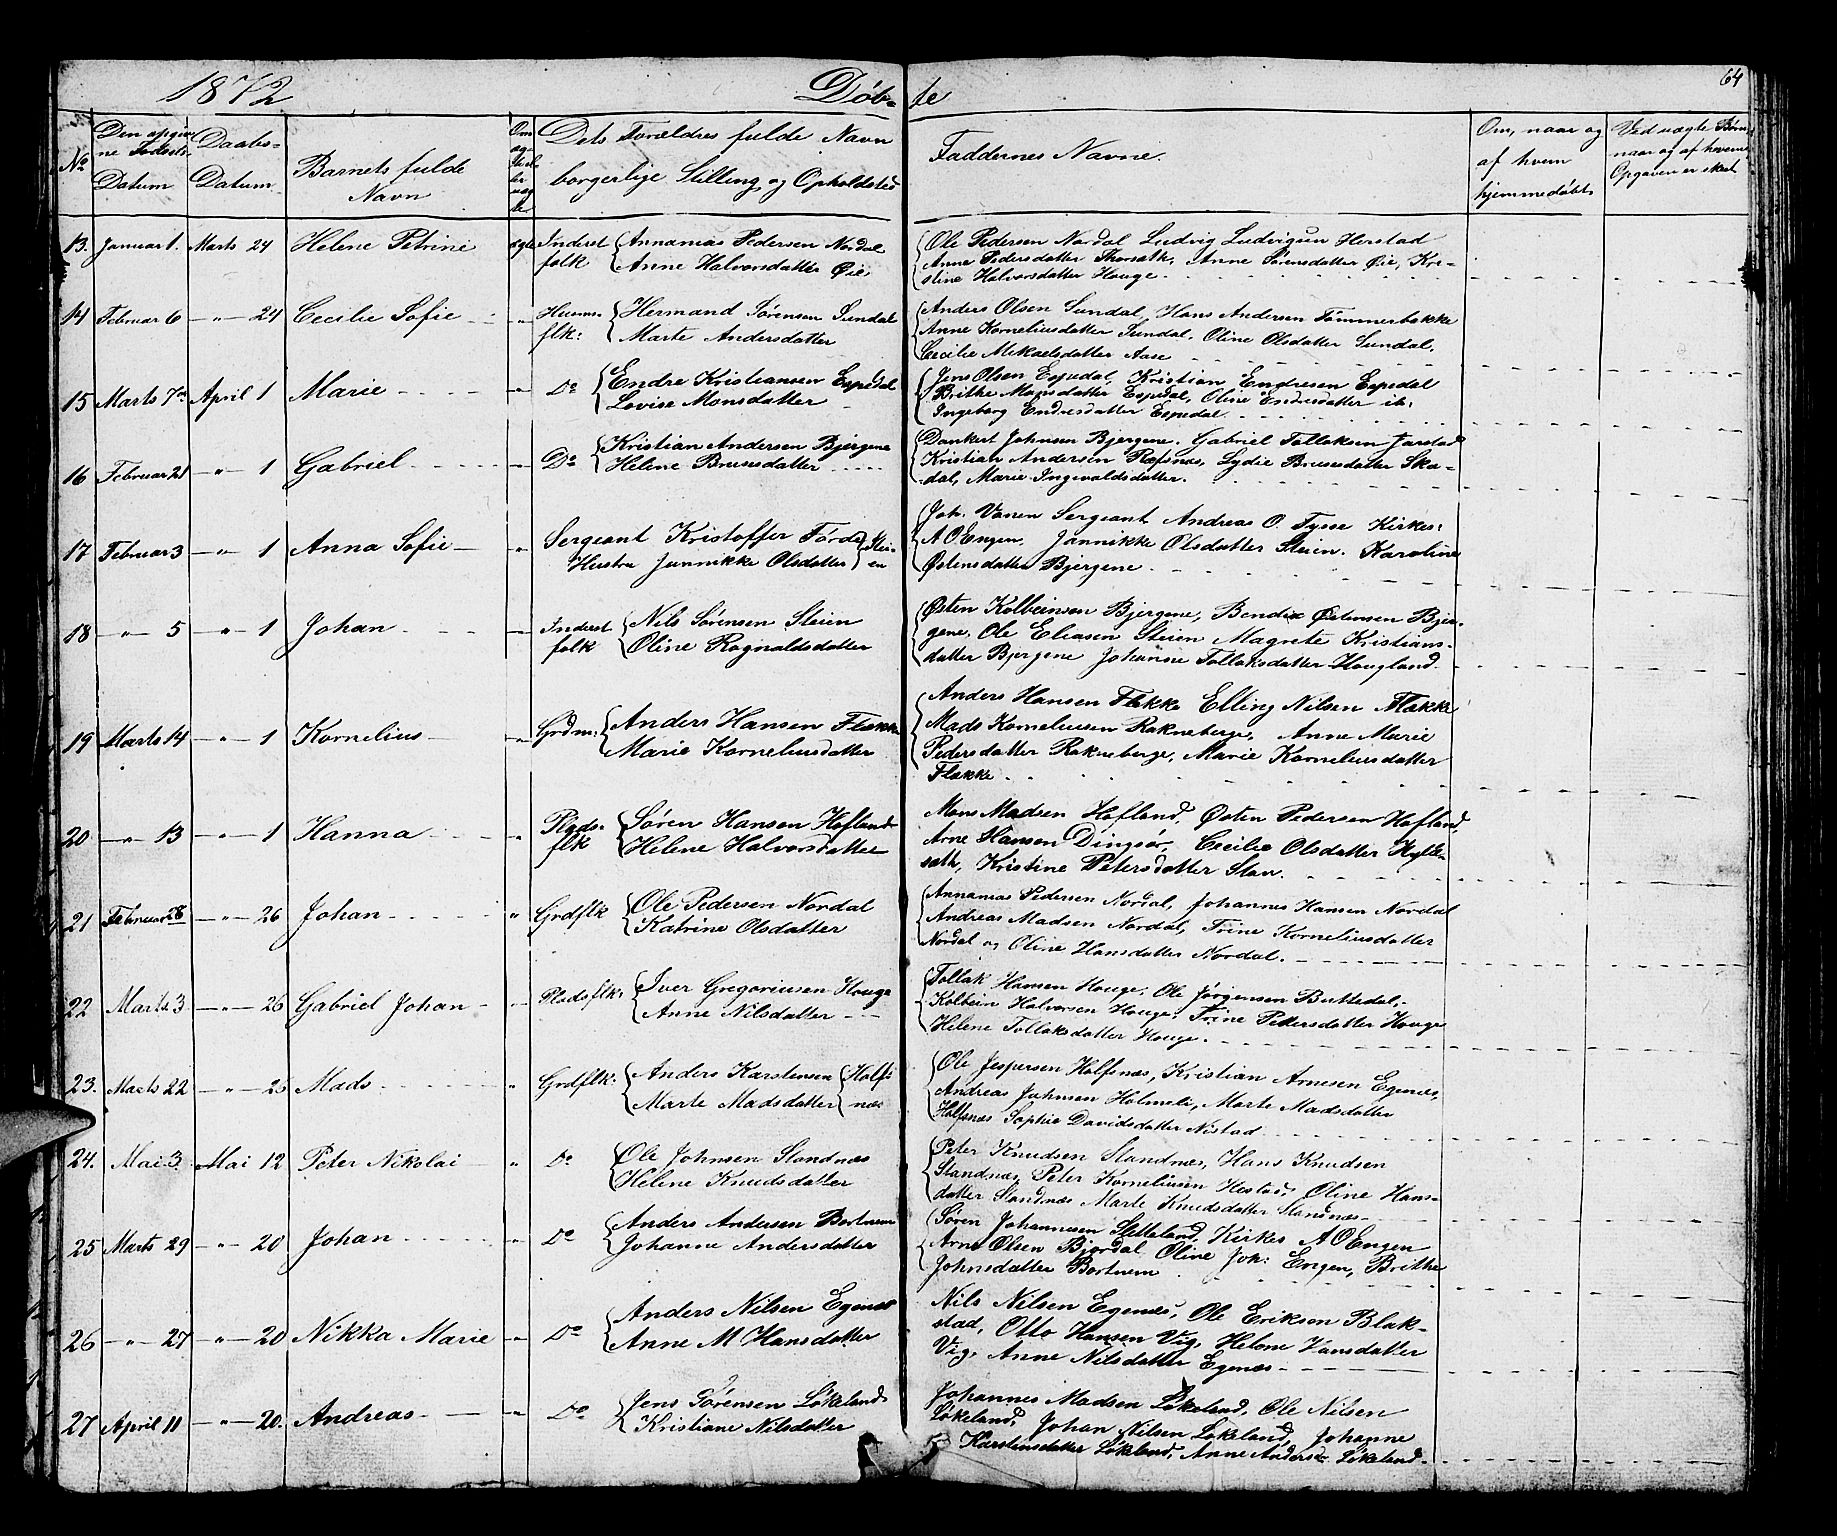 1872 Døb- te 64
No Den opgivne Fødsels- Datum Daabs- Datum Barnets fulde Navn Om ægte eller uægte Dets Forældres fulde Navn borgerlige Stilling og Opholdsted Faddernes Navne. Om, naar og af hvem hjemmedøbt Ved uægte Børn naar og af hvem Opgaven er skeet
13. Januar 1. Marts 24 Helene Petrine ægte Inderst folk Annanias Pedersen Nordal
Anne Halvorsdatter Øie
Ole Pedersen Nordal Ludvig Ludvigsen Herstad
Anne Pedersdatter Thorsæth, Anne Sørensdatter Øie, Kri-
stine Halvorsdatter Houge.
14 Februar 6 -"- 24 Cecilie Sofie " Huusm: flk: Hermand Sørensen Sundal
Marte Andersdatter
Anders Olsen Sundal, Hans Andersen Tømmerbakke
Anne Korneliusdatter Sundal, Oline Olsdatter Sundal,
Cecilie Mikaelsdatter Aase
15 Marts 7de April 1 Marie " Do Endre Kristiansen Espedal
Lovise Monsdatter
Jens Olsen Espedal, Kristian Endresen Espedal
Brithe Monsdatter Espedal, Oline Endresdatter ib:
Ingeborg Endresdatter Espedal
16 Februar 21 -"- 1 Gabriel " Do Kristian Andersen Bjergene
Helene Brusesdatter
Dankert Johnsen Bjergene. Gabriel Tollaksen Jarstad
Kristian Andersen Refsnæs, Lydie Brusesdatter Ska-
dal, Marie Ingevaldsdatter.
17 Februar 3 -"- 1 Anna Sofie " Sergeant Kristoffer Førde
Hustru Jannikke Olsdatter Stei-en
Joh. Vanen Sergeant Andreas O. Tysse Kirkes:
A O Engen, Jannikke Olsdatter Steien. Karoline
Østensdatter Bjergene.
18 -"- 5 -"- 1 Johan " Inderst folk Nils Sørensen Steien
Oline Ragnaldsdatter
Østen Kolbeinsen Bjergene, Bendix Østensen Bjer-
gene, Ole Eliasen Steien Magrete Kristians-
datter Bjergene Johanne Tollaksdatter Hougland.
19 Marts 14 -"- 1 Kornelius " Grdm: Anders Hansen Flekke
Marie Korneliusdatter
Anders Hansen Flekke Elling Nilsen Flekke
Mads Korneliussen Rakneberge, Anne Marie
Pedersdatter Rakneberge, Marie Korneliusdatter
Flekke
20 -"- 13 -"- 1 Hanna " Plads- flk Søren Hansen Hofland
Helene Halvorsdatter
Mons Madsen Hofland, Østen Pedersen Hofland,
Arne Hansen Dingsør, Cecilie Olsdatter Hylle-
sæth, Kristine Petersdatter Stan.
21 Februar 28 -"- 26 Johan " Grdflk Ole Pedersen Nordal
Katrine Olsdatter
Annanias Pedersen Nordal, Johannes Hansen Nordal
Andreas Madsen Nordal, Trine Korneliusdatter
Nordal og Oline Hansdatter Nordal.
22 Marts 3 -"- 26 Gabriel Johan " Pladsflk: Iver Gregoriusen Houge
Anne Nilsdatter
Tollak Hansen Houge, Ole Jørgensen Buttedal,
Kolbein Halvorsen Houge, Trine Petersdatter Houge
Helene Tollaksdatter Houge.
23. Marts 22 -"- 25 Mads " Grdflk: Anders Karstensen
Marte Madsdatter Holfs næs
Ole Jespersen Holfsnæs, Kristian Arnesen Egenæs,
Andreas Johnsen Holmeli, Marte Madsdatter
Holfsnæs Sophie Davidsdatter Nistad
24. Mai 3 Mai 12 Peter Nikolai " Do Ole Johnsen Standnæs
Helene Knudsdatter
Peter Knudsen Standnæs, Hans Knudsen
Standnæs, Peter Korneliusen Hestad, Oline Hans-
datter Standnæs Marte Knudsdatter Standnæs
25 Marts 29 -"- 20 Johan " Do Anders Andersen Bortnem
Johanne Andersdatter
Søren Johannesen Sætteland, Kirkes A O Engen
Arne Olsen Bjordal, Oline Joh: Engen, Brithe
Johnsdatter Bortnem
26 -"- 27 -"- 20 Nikka Marie " Do Anders Nilsen Egenæs
Anne M Hansdatter
Nils Nilsen Egenæs, Ole Eriksen Blak-
stad, Otto Hansen Vig, Helene Hansdatter
Vig, Anne Nilsdatter Egenæs
27 April 11 -"- 20. Andreas " Do Jens Sørensen Løkeland
Kristiane Nilsdatter
Johannes Madsen Løkeland, Ole Nilsen
Løkeland, Johan Nilsen Løkeland, Johanne
Karstensdatter Løkeland, Anne Andersd Løkeland.